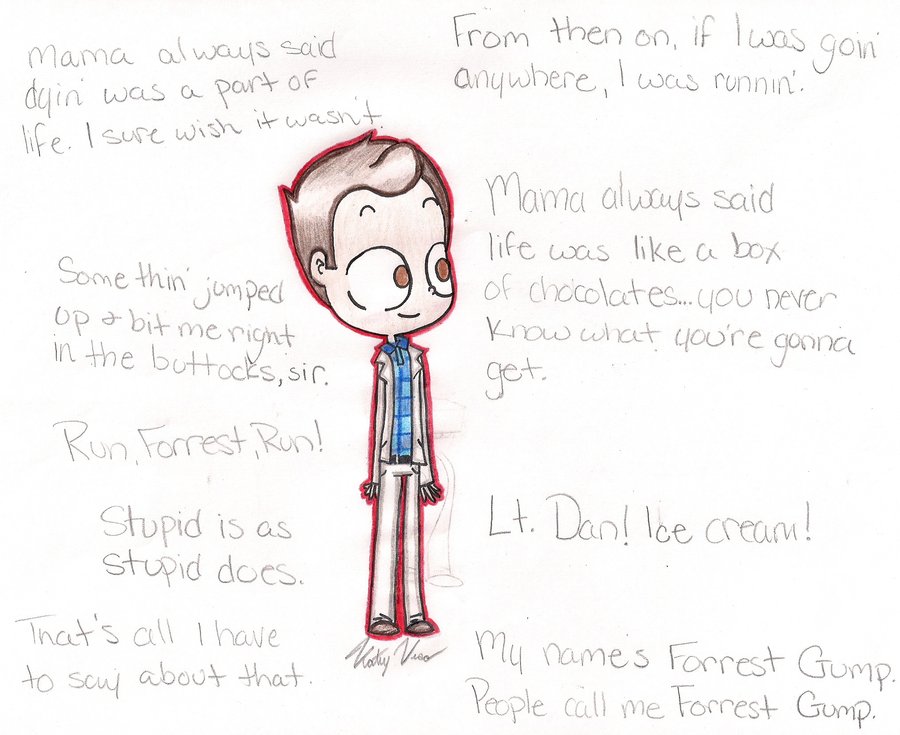 Mama always said
dyin' was a part of
life. I sure wish it wasn't.
From then on, if I was goin'
anywhere, I was runnin'.
Mama always said
life was like a box
of chocolates...you never
know what you're gonna
get.
Somethin' jumped
up & bit me right
in the buttocks, sir.
Run, Forrest, Run!
Stupid is as
stupid does.
Lt. Dan! Ice cream!
That's all I have
to say about that.
My name's Forrest Gump.
People call me Forrest Gump.